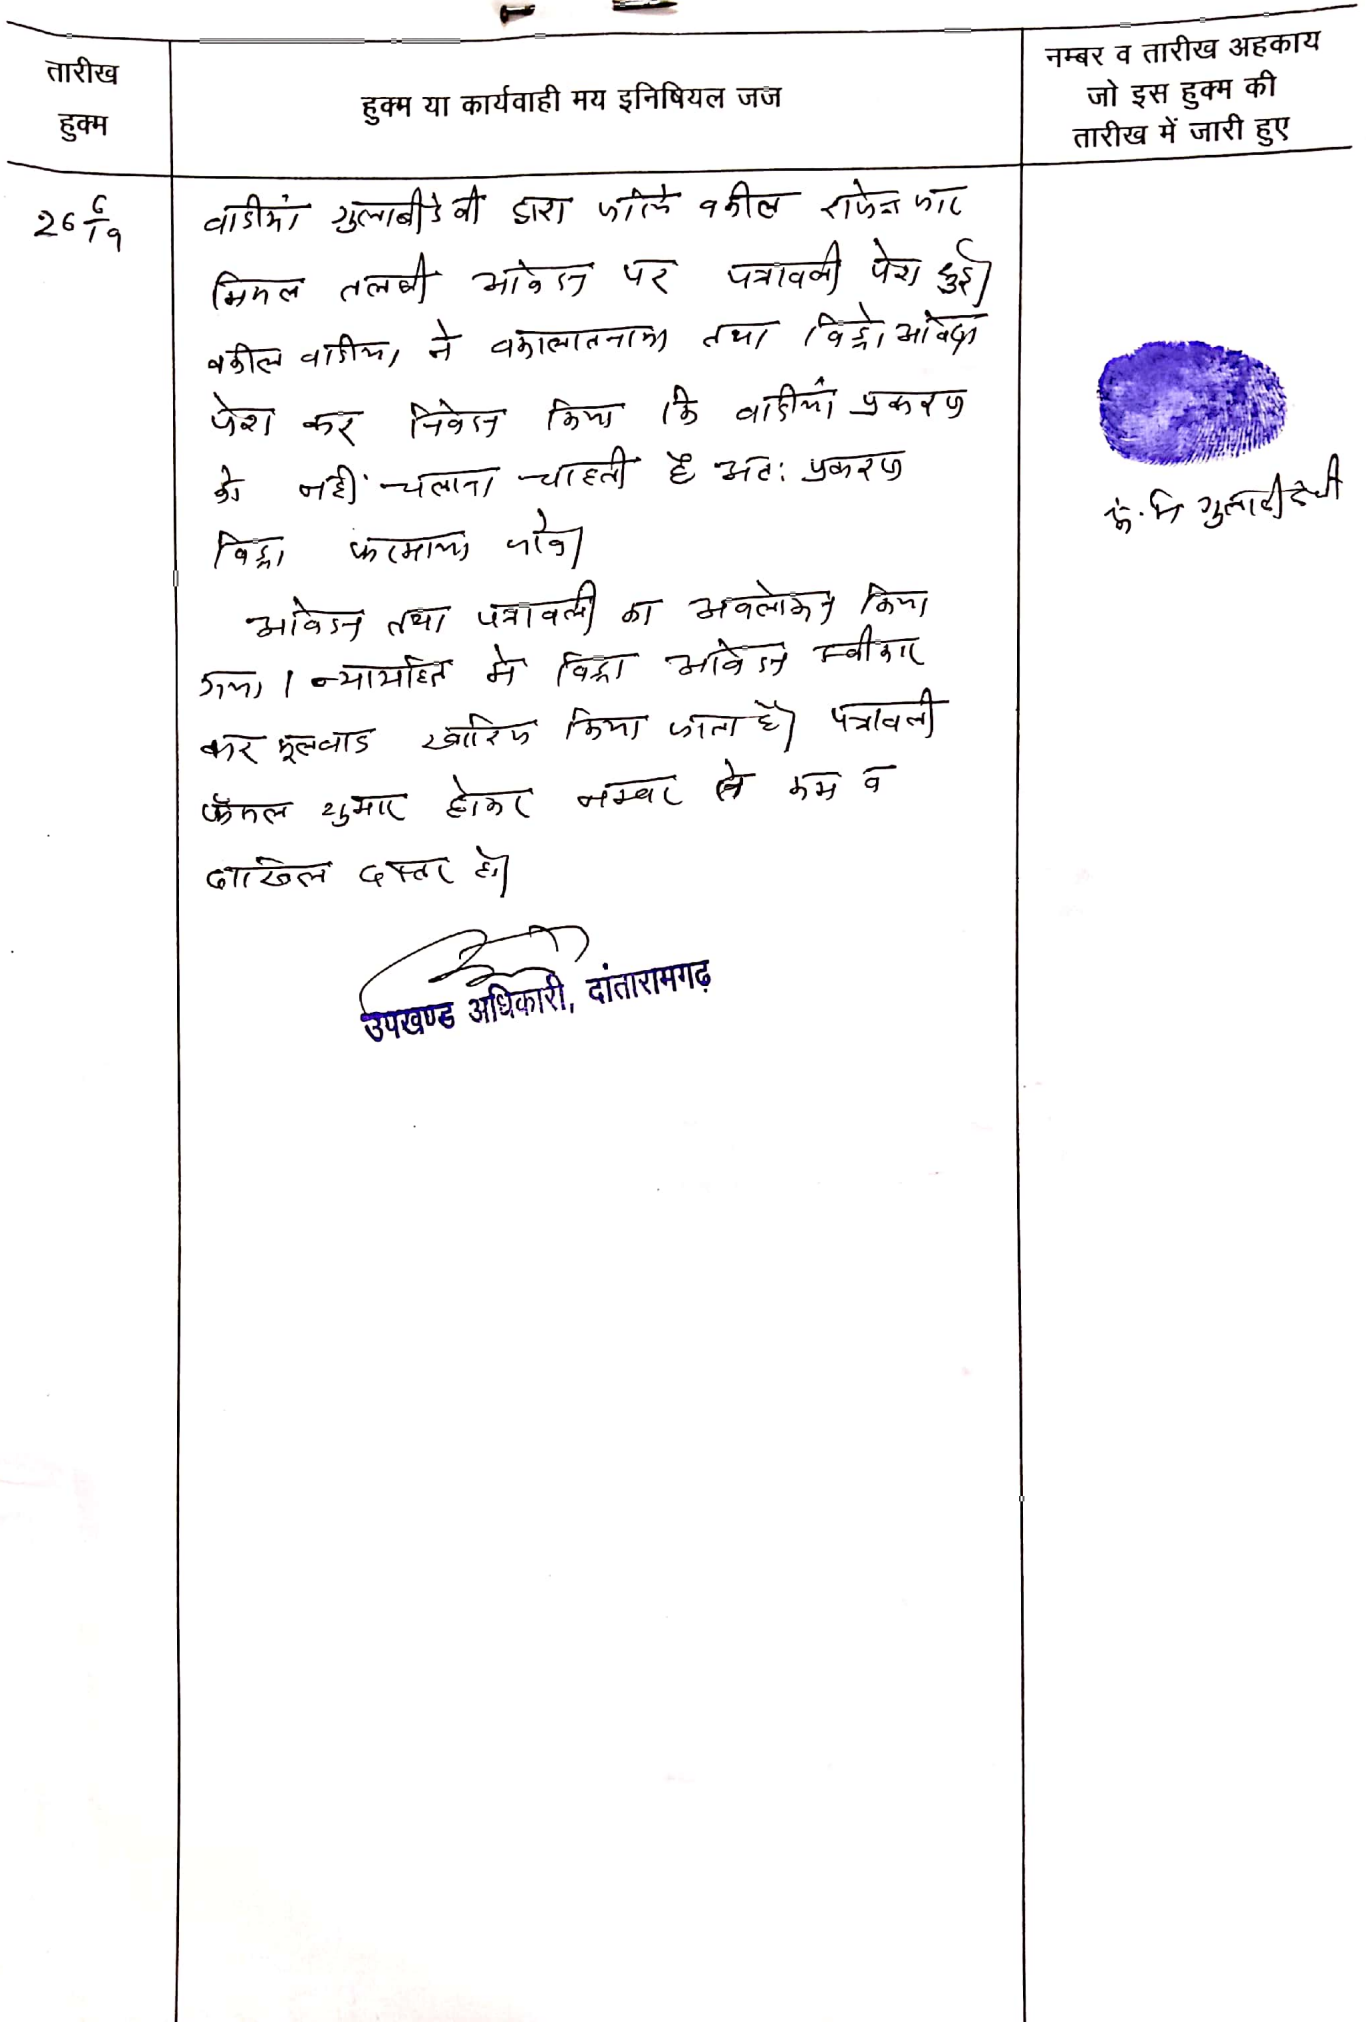 तारीख
हुक्म
हुक्म या कार्यवाही मय इनिषियल जज
नम्बर व तारीख अहकाय
जो इस हुक्म की
तारीख में जारी हुए
26 6/19
वादीया गुलाबीदेवी द्वारा जरिये वकील राजेन्द्र जाट
मिसल तलबी आवेदन पर पत्रावली पेश हुई।
वकील वादीया ने वकालातनामा तथा विड्रो आवेदन
पेश कर निवेदन किया कि वादीयां प्रकरण
को नहीं चलाना चाहती है अतः प्रकरण
विड्रा फरमाया जावे।
आवेदन तथा पत्रावली का अवलोकन किया
गया। न्यायहित में विड्रा आवेदन स्वीकार
कर मूलवाद खारिज किया जाता है। पत्रावली
फैसल शुमार होकर नम्बर से कम व
दाखिल दफ्तर हो।
उपखण्ड अधिकारी, दांतारामगढ़
नि गुलाबीदेवी